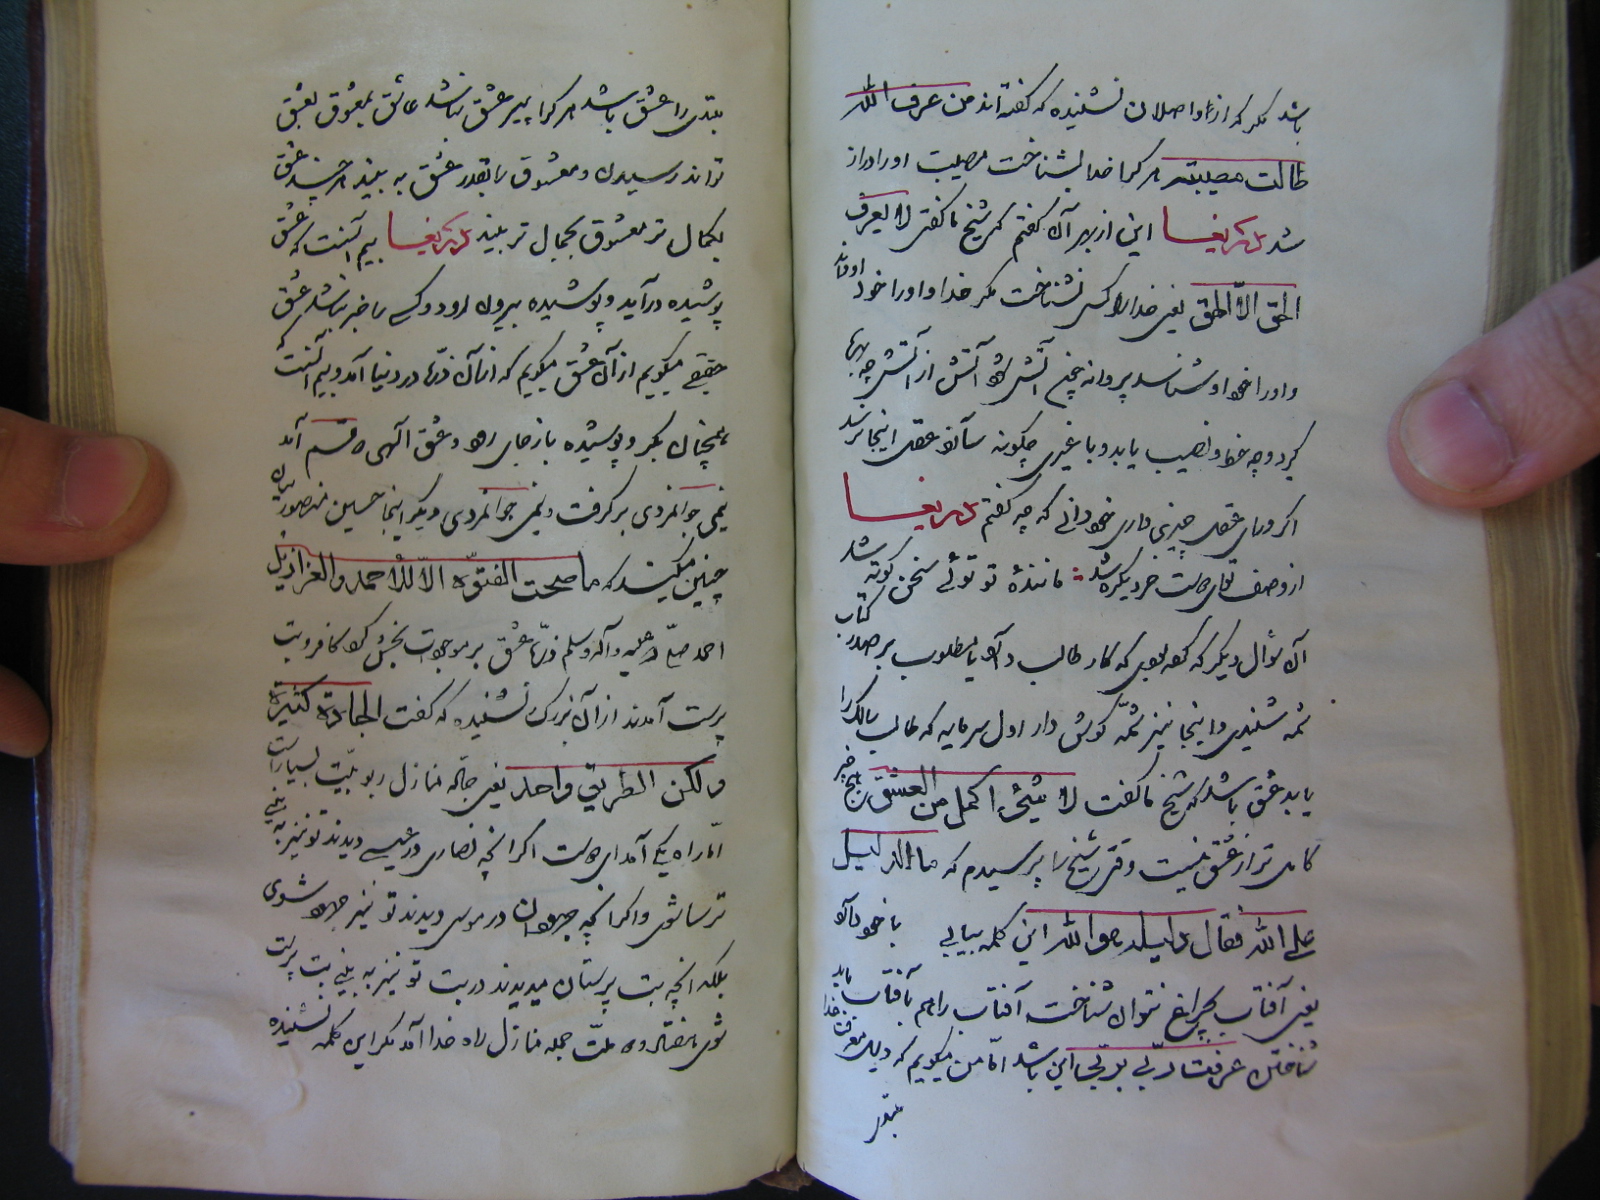 باشد مگر که از واصلان نشنیده که گفته‌اند من عرف الله
طالت مصیبته هر کرا خدا بشناخت مصیبت او دراز
شد دریغا این از بهر آن گفتم که شیخ ما گفتی لا یعرف
الحق الا الحق یعنی خدا را کس نشناخت مگر خدا و او را خود او داند
و او را خود او شناسد پروانه چون آتش شود آتش از آتش چه بهره
گیرد و چه حظ و نصیب یابد و با غیری چگونه سازد عقل اینجا نرسد
اگر ورای عقل چیزی داری خود دانی که چه گفتم دریغا
از وصف تو ای دوست خرد گمره شد ماننده تو توئی سخن کوته شد
آن سؤال دیگر که کرده بودی که کار طالب دارد یا مطلوب بر صدر کتاب
شمه شنیدی و اینجا نیز شمه گوش دار اول سرمایه که طالب سالک را
باید عشق باشد که شیخ ما گفت لا شیء اکمل من العشق هیچ چیز
کامل تر از عشق نیست وقتی شیخ را پرسیدم که ما الدلیل
علی الله فقال دلیله هو الله این کلمه بیانی با خود دارد
یعنی آفتاب بچراغ نتوان شناخت آفتاب را هم بآفتاب باید
شناختن عرفت ربی بربی این باشد اما من میگویم که دلیل معرفت خدا
مبتدی
مبتدی را عشق باشد هر کرا پیر عشق نباشد عاشق بمعشوق بعشق
تواند رسیدن و معشوق را بقدر عشق به بیند هر چند عشق
بکمال تر معشوق بجمال تر بیند دریغا بیم آنست که عشق
پوشیده درآید و پوشیده بیرون رود و کسی را خبر نباشد عشق
حقیقی میگویم از آن عشق میگویم که از آن ذره در دنیا آمد و بیم آنست که
همچنان بکر و پوشیده با جای رود و عشق الهی دو قسم آمد
نیمی جوانمردی بر گرفت و نیمی جوانمردی دیگر اینجا حسین منصور بیان
چنین میکند که ما صحت الفتوة الا لاحمد و العزازیل
احمد صلی الله علیه وآله وسلم ذره عشق بر موجودات بخش کرد کافر و بت
پرست آمدند از آن بزرگ نشنیده که گفت الجادة کثیرة
ولکن الطریق واحد یعنی جاده منازل ربوبیت بسیار است
اما راه یکی آمد ای دوست اگر آنچه نصاری در عیسی دیدند تو نیز به بینی
ترسا شوی و اگر آنچه جهودان در موسی دیدند تو نیز جهود شوی
بلکه آنچه بت پرستان میدیدند در بت تو نیز به بینی بت پرست
شوی هفتاد و دو ملت جمله منازل راه خدا آمد مگر این کلمه نشنیده